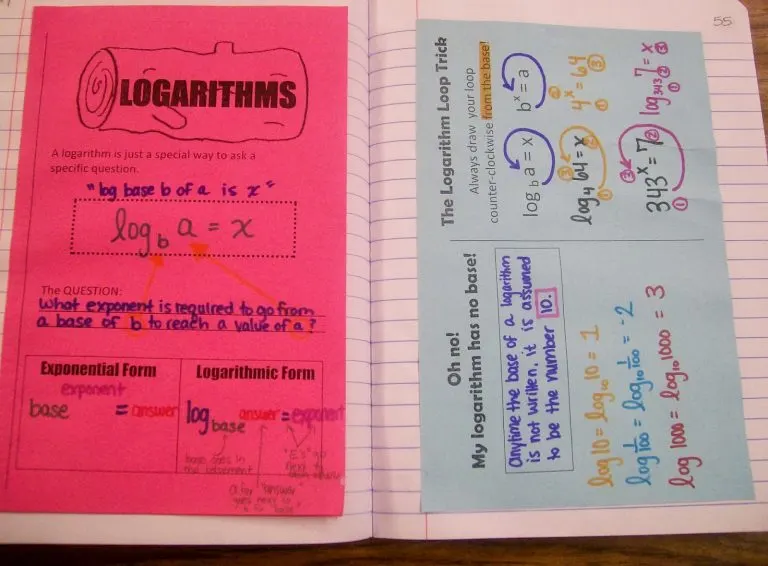 LOGARITHMS
A logarithm is just a special way to ask a
specific question.
"log base b of a is x"
log_b a = x
The QUESTION:
What exponent is required to go from
a base of b to reach a value of a?
Exponential Form
exponent
base = answer
Logarithmic Form
log_base answer = exponent
base goes in
the basement
"E's" go
next to
a for "answer"
goes next to
55
The Logarithm Loop Trick
Always draw your loop
counter-clockwise from the base!
log_b a = x b^x = a
log_4 64 = x 4^x = 64
① ② ③ ① ② ③
343^x = 7 log_343 7 = x
① ② ③ ① ② ③
Oh no!
My logarithm has no base!
Anytime the base of a logarithm
is not written, it is assumed
to be the number 10.
log 10 = log_10 10 = 1
log 1/100 = log_10 1/100 = -2
log 1000 = log_10 1000 = 3